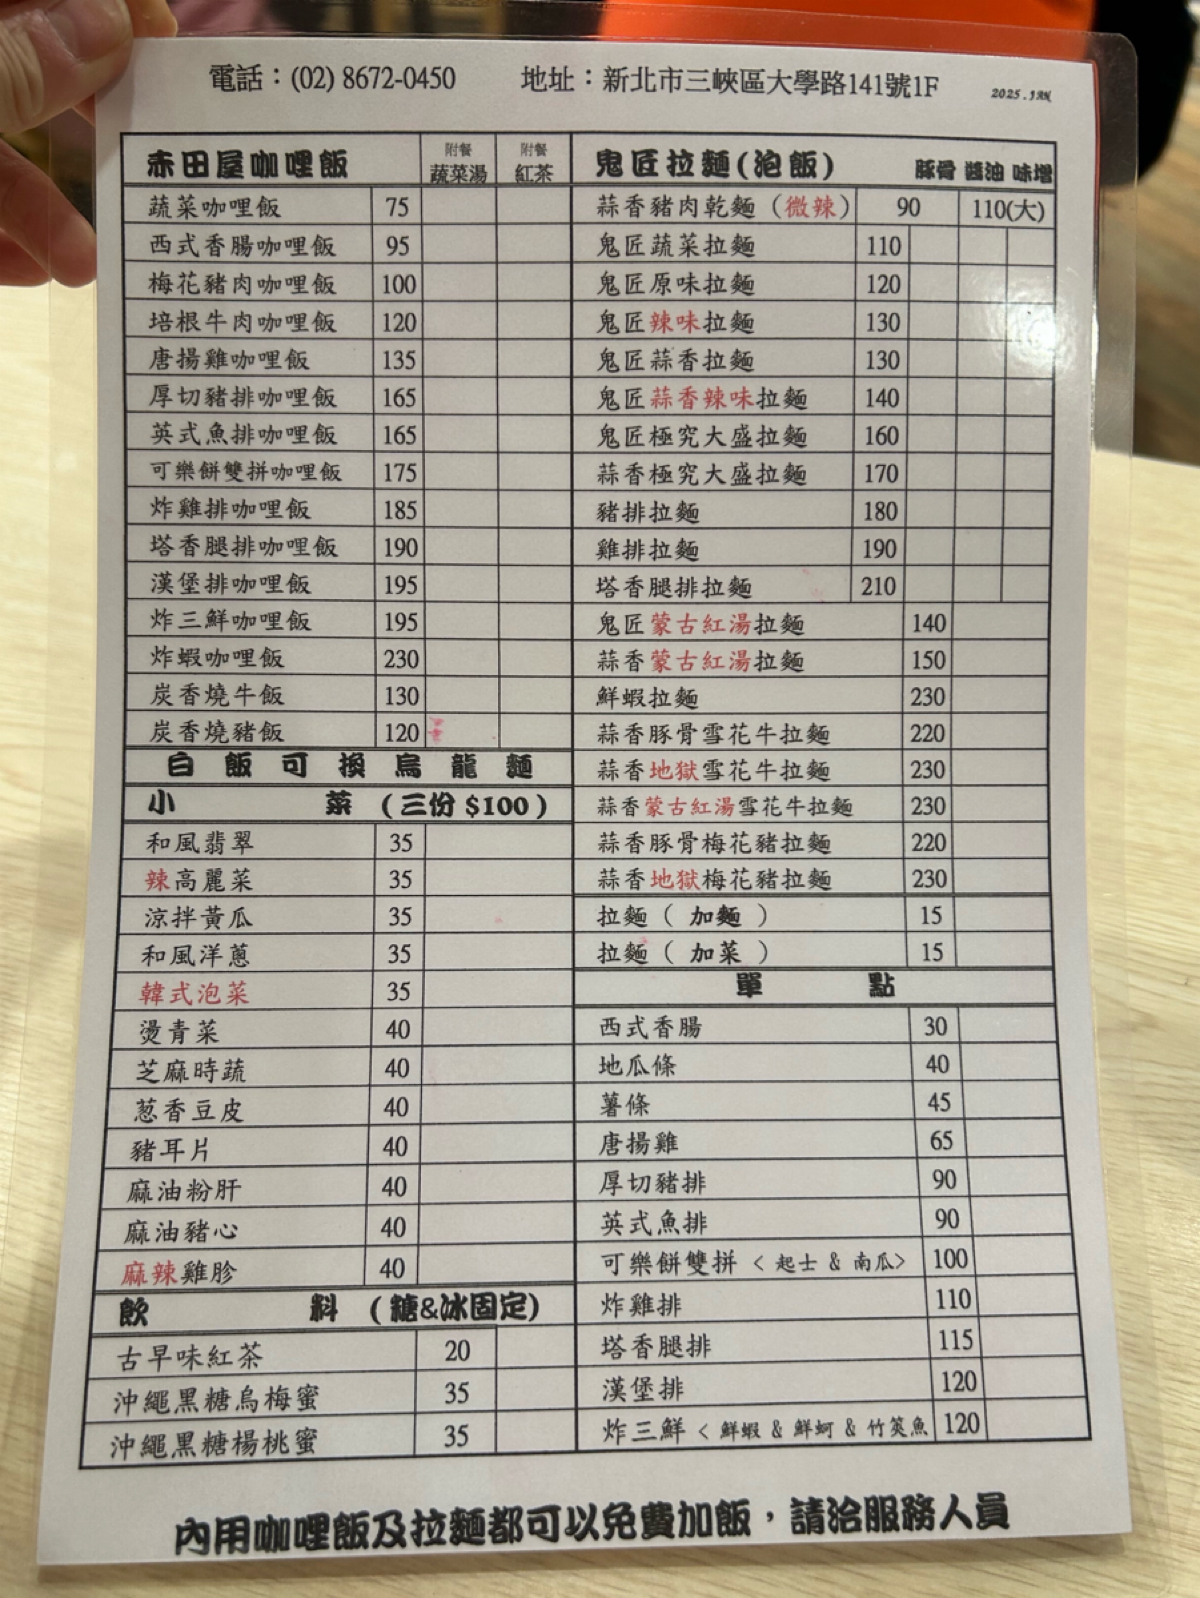 電話：(02) 8672-0450 地址：新北市三峽區大學路141號1F 2025.JAN
赤田屋咖哩飯 附餐 蔬菜湯 附餐 紅茶
蔬菜咖哩飯 75
西式香腸咖哩飯 95
梅花豬肉咖哩飯 100
培根牛肉咖哩飯 120
唐揚雞咖哩飯 135
厚切豬排咖哩飯 165
英式魚排咖哩飯 165
可樂餅雙拼咖哩飯 175
炸雞排咖哩飯 185
塔香腿排咖哩飯 190
漢堡排咖哩飯 195
炸三鮮咖哩飯 195
炸蝦咖哩飯 230
炭香燒牛飯 130
炭香燒豬飯 120
白飯可換烏龍麵
小菜 (三份 $100)
和風翡翠 35
辣高麗菜 35
涼拌黃瓜 35
和風洋蔥 35
韓式泡菜 35
燙青菜 40
芝麻時蔬 40
蔥香豆皮 40
豬耳片 40
麻油粉肝 40
麻油豬心 40
麻辣雞胗 40
飲料 (糖&冰固定)
古早味紅茶 20
沖繩黑糖烏梅蜜 35
沖繩黑糖楊桃蜜 35
鬼匠拉麵(泡飯) 豚骨 醬油 味增
蒜香豬肉乾麵（微辣） 90 110(大)
鬼匠蔬菜拉麵 110
鬼匠原味拉麵 120
鬼匠辣味拉麵 130
鬼匠蒜香拉麵 130
鬼匠蒜香辣味拉麵 140
鬼匠極究大盛拉麵 160
蒜香極究大盛拉麵 170
豬排拉麵 180
雞排拉麵 190
塔香腿排拉麵 210
鬼匠蒙古紅湯拉麵 140
蒜香蒙古紅湯拉麵 150
鮮蝦拉麵 230
蒜香豚骨雪花牛拉麵 220
蒜香地獄雪花牛拉麵 230
蒜香蒙古紅湯雪花牛拉麵 230
蒜香豚骨梅花豬拉麵 220
蒜香地獄梅花豬拉麵 230
拉麵（ 加麵 ） 15
拉麵（ 加菜 ） 15
單點
西式香腸 30
地瓜條 40
薯條 45
唐揚雞 65
厚切豬排 90
英式魚排 90
可樂餅雙拼 < 起士 & 南瓜> 100
炸雞排 110
塔香腿排 115
漢堡排 120
炸三鮮 < 鮮蝦 & 鮮蚵 & 竹筴魚 120
內用咖哩飯及拉麵都可以免費加飯，請洽服務人員